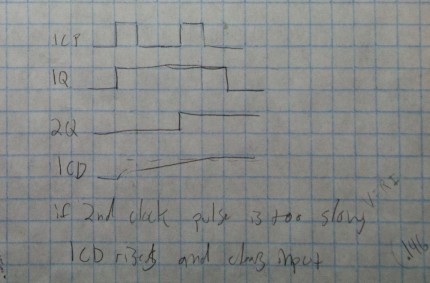 1CP
1Q
2Q
1CD
if 2nd clock pulse is too slow
1CD rises and clears input